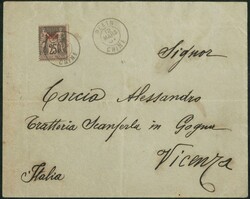 25
CHINE
Signor
Corcia Alessandro
Tratteria Scanferla in Gogna
Vicenza
Italia